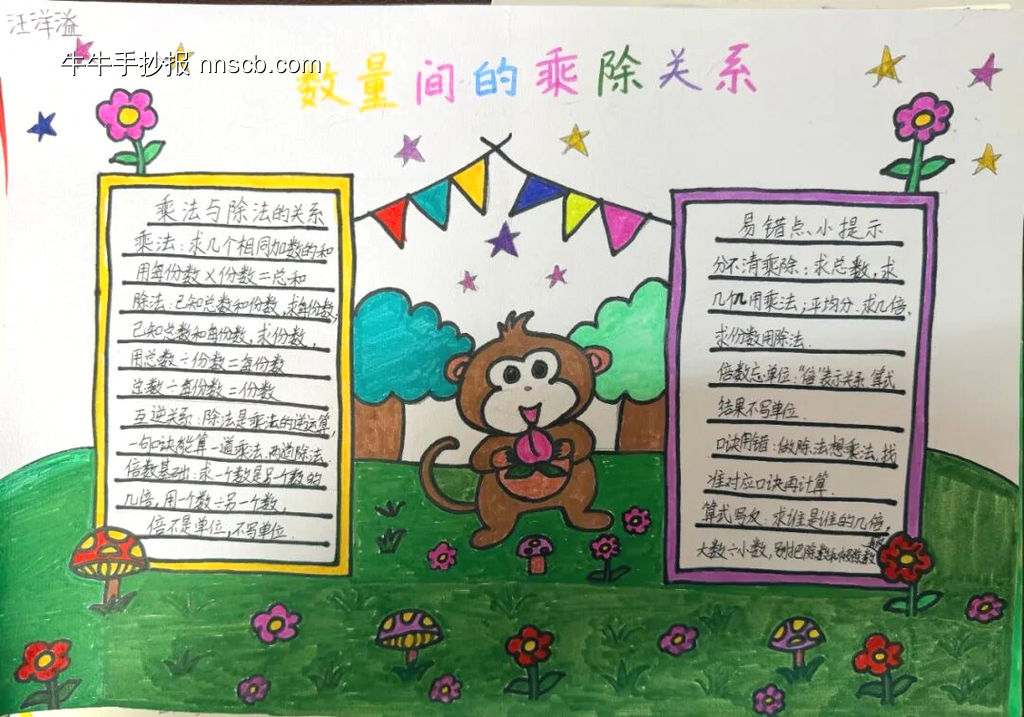 汪洋溢
牛牛手抄报 nnscb.com
数量间的乘除关系
乘法与除法的关系
乘法:求几个相同加数的和
用每份数×份数=总和
除法:已知总数和份数,求每份数;
已知总数和每份数,求份数,
用总数÷份数=每份数
总数÷每份数=份数
互逆关系:除法是乘法的逆运算,
一句口诀能算一道乘法,两道除法.
倍数基础:求一个数是另一个数的
几倍,用一个数÷另一个数,
倍不是单位,不写单位.
易错点小提示
分不清乘除:求总数,求
几个几用乘法;平均分.求几倍、
求份数用除法.
倍数忘单位:“倍”表示关系 算式
结果不写单位.
口诀用错:做除法想乘法,找
准对应口诀再计算.
算式写反:求谁是谁的几倍,
大数÷小数,别把除数和被除数